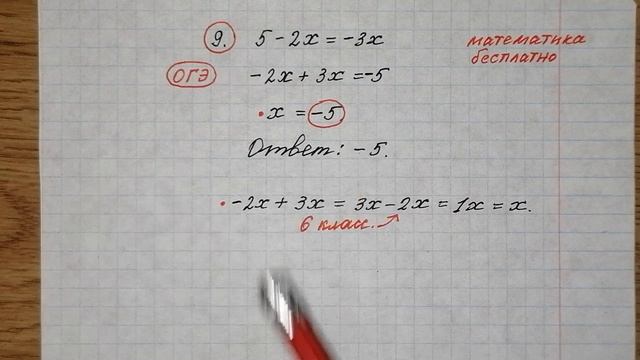 9. 5 - 2x = -3x
математика
бесплатно
ОГЭ -2x + 3x = -5
• x = -5
Ответ: -5.
• -2x + 3x = 3x - 2x = 1x = x.
6 класс.